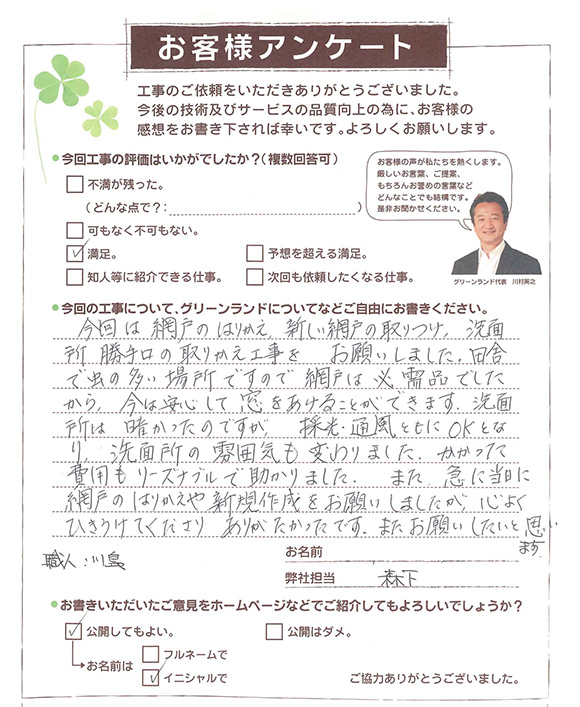 お客様アンケート
工事のご依頼をいただきありがとうございました。
今後の技術及びサービスの品質向上の為に、お客様の
感想をお書き下されば幸いです。よろしくお願いします。
今回工事の評価はいかがでしたか？(複数回答可)
不満が残った。
(どんな点で？: )
可もなく不可もない。
満足。
予想を超える満足。
知人等に紹介できる仕事。
次回も依頼したくなる仕事。
お客様の声が私たちを熱くします。
厳しいお言葉、ご提案、
もちろんお誉めの言葉など
どんなことでも結構です。
是非お聞かせください。
グリーンランド代表 川村英之
今回の工事について、グリーンランドについてなどご自由にお書きください。
今回は網戸のはりかえ、新しい網戸の取りつけ、洗面
所 勝手口の取りかえ工事を お願いしました。田舎
で虫の多い場所ですので網戸は必需品でした
から、今は安心して窓をあけることができます。洗面
所は暗かったのですが 採光・通風ともにOKとな
り、洗面所の雰囲気も変わりました。かかった
費用もリーズナブルで助かりました。 また、急に当日に
網戸のはりかえや新規作成をお願いしましたが、心よく
ひきうけてくださり ありがたかったです。またお願いしたいと思い
ます。
職人：川島
お名前
弊社担当 森下
お書きいただいたご意見をホームページなどでご紹介してもよろしいでしょうか？
公開してもよい。
公開はダメ。
お名前は
フルネームで
イニシャルで
ご協力ありがとうございました。